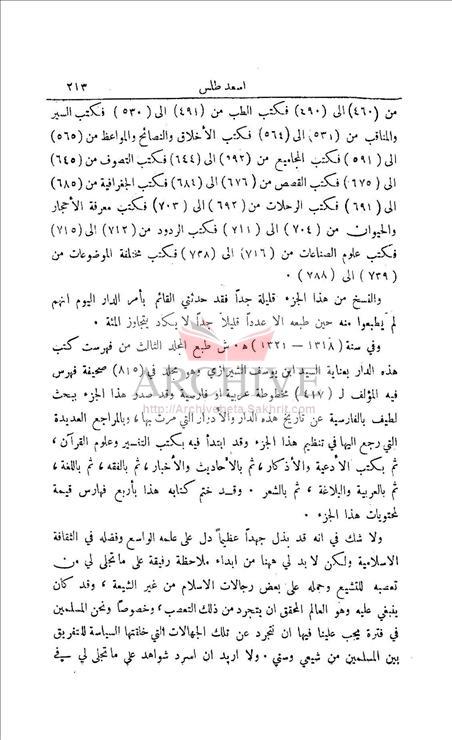 اسعد طلس ٢١٣
من (٤٦٠) الى (٤٩٠) فكتب الطب من (٤٩١) الى (٥٣٠) فكتب السير
والمناقب من (٥٣١) الى (٥٦٤) فكتب الأخلاق والنصائح والمواعظ من (٥٦٥)
الى (٥٩١) فكتب المجاميع من (٥٩٢) الى (٦٤٤) فكتب التصوف من (٦٤٥)
الى (٦٧٥) فكتب القصص من (٦٧٦) الى (٦٨٤) فكتب الجغرافية من (٦٨٥)
الى (٦٩١) فكتب الرحلات من (٦٩٢) الى (٧٠٣) فكتب معرفة الأحجار
والحيوان من (٧٠٤) الى (٧١١) فكتب الردود من (٧١٢) الى (٧١٥)
فكتب علوم الصناعات من (٧١٦) الى (٧٣٨) فكتب مختلفة الموضوعات من
(٧٣٩) الى (٧٨٨) .
والنسخ من هذا الجزء قليلة جداً فقد حدثني القائم بأمر الدار اليوم انهم
لم يطبعوا منه حين طبعه الا عدداً قليلاً جداً لا يكاد يتجاوز المئة .
وفي سنة (١٣١٨ – ١٣٢١) ه . ش طبع المجلد الثالث من فهرست كتب
هذه الدار بعناية السيد ابن يوسف الشيرازي وهو مجلد في (٨١٥) صحيفة فهرس
فيه المؤلف لـ (٤١٧) مخطوطة عربية او فارسية وقد صدر هذا الجزء ببحث
لطيف بالفارسية عن تاريخ هذه الدار والأدوار التي مرت بها ، وبالمراجع العديدة
التي رجع اليها في تنظيم هذا الجزء وقد ابتدأ فيه بكتب التفسير وعلوم القرآن ،
ثم بكتب الأدعية والأذكار ، ثم بالأحاديث والأخبار ، ثم بالفقه ، ثم باللغة ،
ثم بالعربية والبلاغة ، ثم بالشعر . وقد ختم كتابه هذا بأربع فهارس قيمة
لمحتويات هذا الجزء .
ولا شك في انه قد بذل جهداً عظيماً دل على علمه الواسع وفضله في الثقافة
الاسلامية ولكن لا بد لي ههنا من ابداء ملاحظة رفيقة على ما تجلى لي من
تعصبه للتشيع وحمله على بعض رجالات الاسلام من غير الشيعة ، وقد كان
ينبغي عليه وهو العالم المحقق ان يتجرد من ذلك التعصب ، وخصوصاً ونحن المسلمين
في فترة يجب علينا فيها ان نتجرد عن تلك الجهالات التي خلقتها السياسة للتفريق
بين المسلمين من شيعي وسني . ولا اريد ان اسرد شواهد على ما تجلى لي في
ARCHIVE
http://Archivebeta.Sakhrit.com